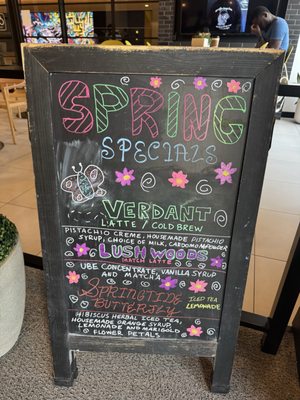 SPRING
SPECIALS
VERDANT
LATTE / COLD BREW
PISTACHIO CREME, HOUSEMADE PISTACHIO
SYRUP, CHOICE OF MILK, CARDOMOM POWDER
LUSH WOODS
MATCH LATTE
UBE CONCENTRATE, VANILLA SYRUP
AND MATCHA
SPRINGTIDE
BUTTERFLY
ICED TEA
LEMONADE
HIBISCUS HERBAL ICED TEA,
HOUSEMADE ORANGE SYRUP,
LEMONADE AND MARIGOLD
FLOWER PETALS